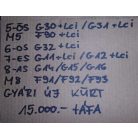 5-ÖS G30+LCi / G31+LCi
M5 F90+LCi
6-OS G32+LCi
7-ES G11+LCi / G12+LCi
8-AS G14/G15/G16
M8 F91/F92/F93
GYÁRI ÚJ KÜRT
15.000.- +ÁFA